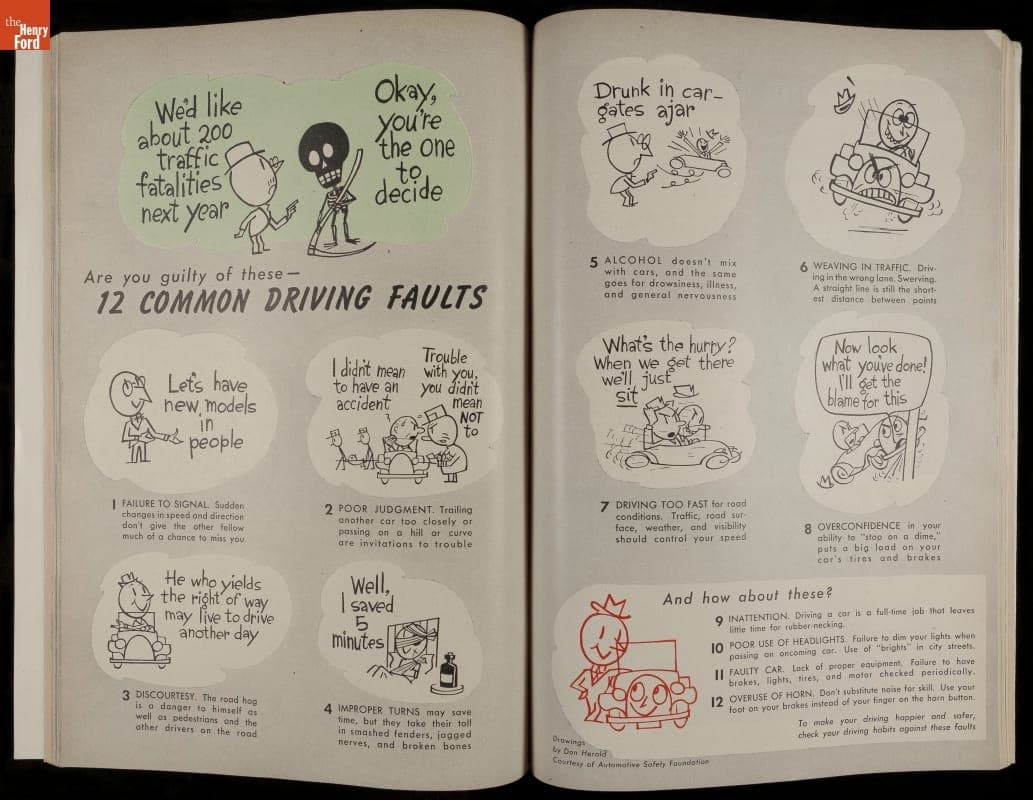 the
Henry
Ford
We'd like
about 200
traffic
fatalities
next year
Okay,
you're
the one
to
decide
Are you guilty of these—
12 COMMON DRIVING FAULTS
Let's have
new models
in
people
1 FAILURE TO SIGNAL. Sudden
changes in speed and direction
don't give the other fellow
much of a chance to miss you
I didn't mean
to have an
accident
Trouble
with you,
you didn't
mean
NOT
to
2 POOR JUDGMENT. Trailing
another car too closely or
passing on a hill or curve
are invitations to trouble
He who yields
the right of way
may live to drive
another day
3 DISCOURTESY. The road hog
is a danger to himself as
well as pedestrians and the
other drivers on the road
Well,
I saved
5
minutes
4 IMPROPER TURNS may save
time, but they take their toll
in smashed fenders, jagged
nerves, and broken bones
Drunk in car—
gates ajar
5 ALCOHOL doesn't mix
with cars, and the same
goes for drowsiness, illness,
and general nervousness
6 WEAVING IN TRAFFIC. Driv-
ing in the wrong lane. Swerving.
A straight line is still the short-
est distance between points
What's the hurry?
When we get there
we'll just
sit
7 DRIVING TOO FAST for road
conditions. Traffic, road sur-
face, weather, and visibility
should control your speed
Now look
what you've done!
I'll get the
blame for this
8 OVERCONFIDENCE in your
ability to "stop on a dime,"
puts a big load on your
car's tires and brakes
And how about these?
9 INATTENTION. Driving a car is a full-time job that leaves
little time for rubber-necking.
10 POOR USE OF HEADLIGHTS. Failure to dim your lights when
passing an oncoming car. Use of "brights" in city streets.
11 FAULTY CAR. Lack of proper equipment. Failure to have
brakes, lights, tires, and motor checked periodically.
12 OVERUSE OF HORN. Don't substitute noise for skill. Use your
foot on your brakes instead of your finger on the horn button.
To make your driving happier and safer,
check your driving habits against these faults
Drawings
by Don Herold
Courtesy of Automotive Safety Foundation